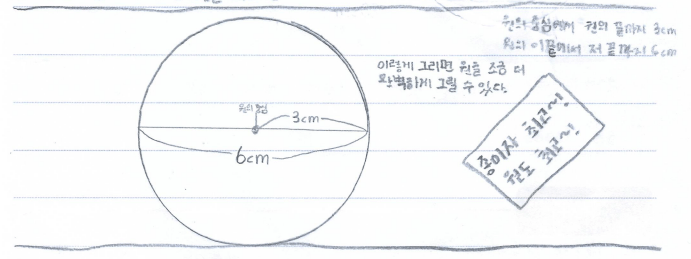 원의 중심에서 원의 끝까지 3cm
원의 이끝에서 저 끝까지 6cm
이렇게 그리면 원을 조금 더
완벽하게 그릴 수 있다.
원의 중심
3cm
6cm
종이자 최고~!
원도 최고~!